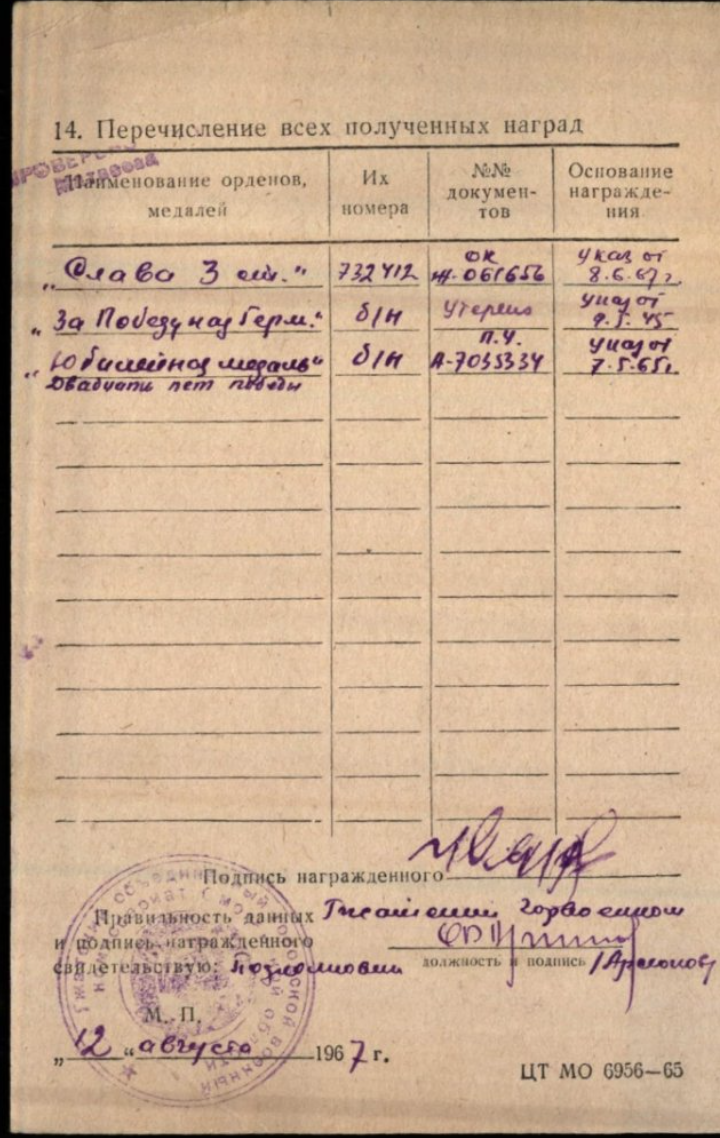 14. Перечисление всех полученных наград
ПРОВЕРЕНО
Наименование орденов, медалей
Их номера
№№ документов
Основание награждения
„Слава 3 ст." 732412 ОК Ж-061656 Указ от 8.6.67г.
„За Победу над Герм." б/н Утеряно Указ от 9.5.45
„Юбилейная медаль" б/н П.У. А-7035334 Указ от 7.5.65г.
Двадцати лет победы
Подпись награжденного
Правильность данных горвоенком
и подпись награжденного
свидетельствую: должность и подпись
М. П.
„12" августа 1967 г.
ЦТ МО 6956—65